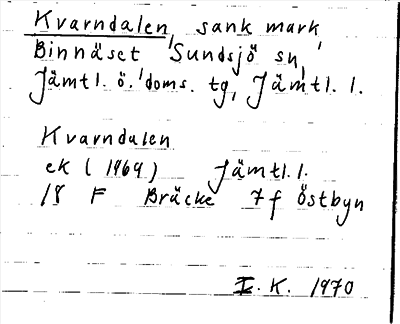 Kvarndalen, sank mark
Binnäset Sundsjö sn,
Jämtl. ö. doms. tg, Jämtl. l.
Kvarndalen
ek (1969) Jämtl. l.
18 F Bräcke 7f Östbyn
I. K. 1970